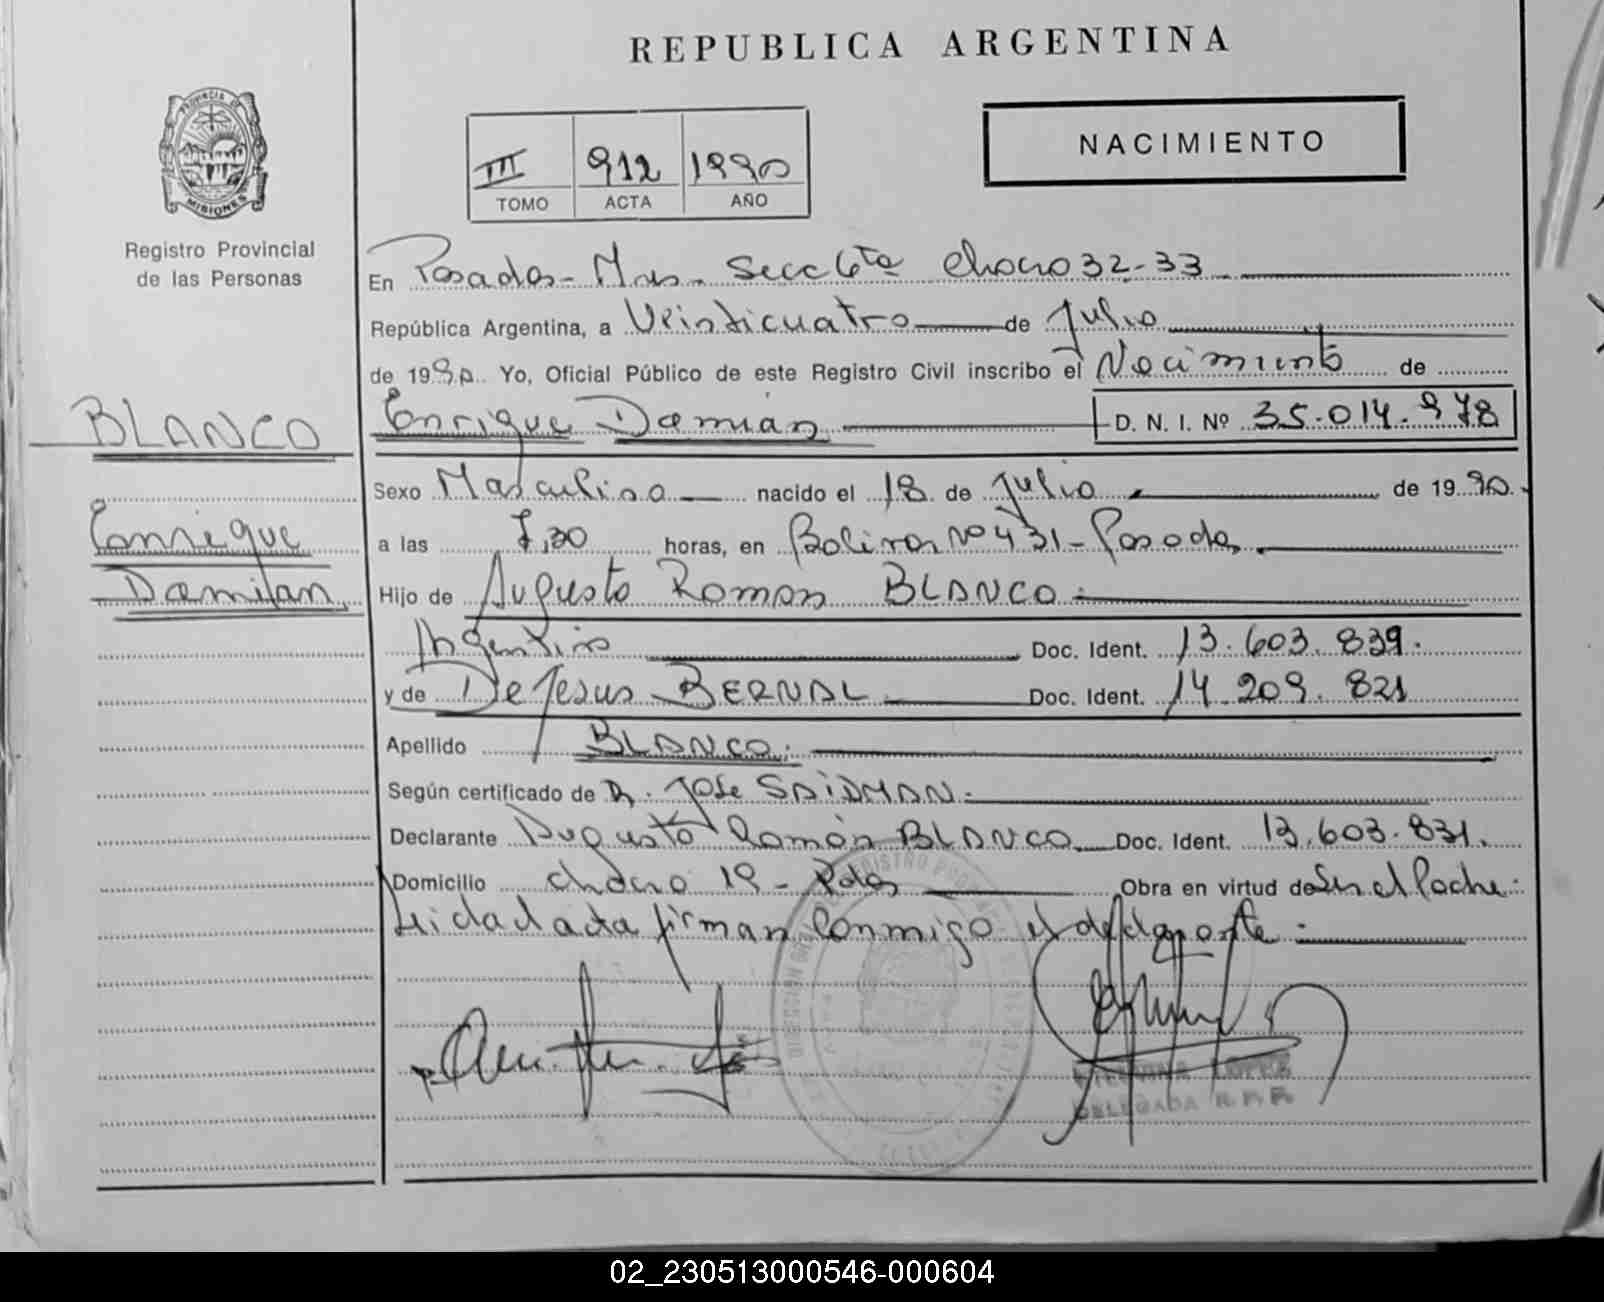 REPUBLICA ARGENTINA
PROVINCIA DE
MISIONES
Registro Provincial
de las Personas
III 912 1990
TOMO ACTA AÑO
NACIMIENTO
En Posadas - Mnes. Secc 6ta Chaco 32-33
República Argentina, a Veinticuatro de Julio
de 1990. Yo, Oficial Público de este Registro Civil inscribo el Nacimiento de
BLANCO
Enrique Damián D. N. I. Nº 35.014.978
Sexo Masculino nacido el 18 de Julio de 1990.
Enrique
Damian
a las 7,30 horas, en Bolivar Nº 431 - Posadas
Hijo de Augusto Roman BLANCO
Argentino Doc. Ident. 13.603.839.
y de De Jesus BERNAL Doc. Ident. 14.209.821
Apellido BLANCO.
Según certificado de Dr. Jose SAIDMAN.
Declarante Augusto Ramón BLANCO Doc. Ident. 13.603.831.
Domicilio Chaco 19 - Pdas Obra en virtud de Ser el Padre.
Leida el acta firman conmigo el
LOPEZ
DELEGADA R. P. P.
02_230513000546-000604